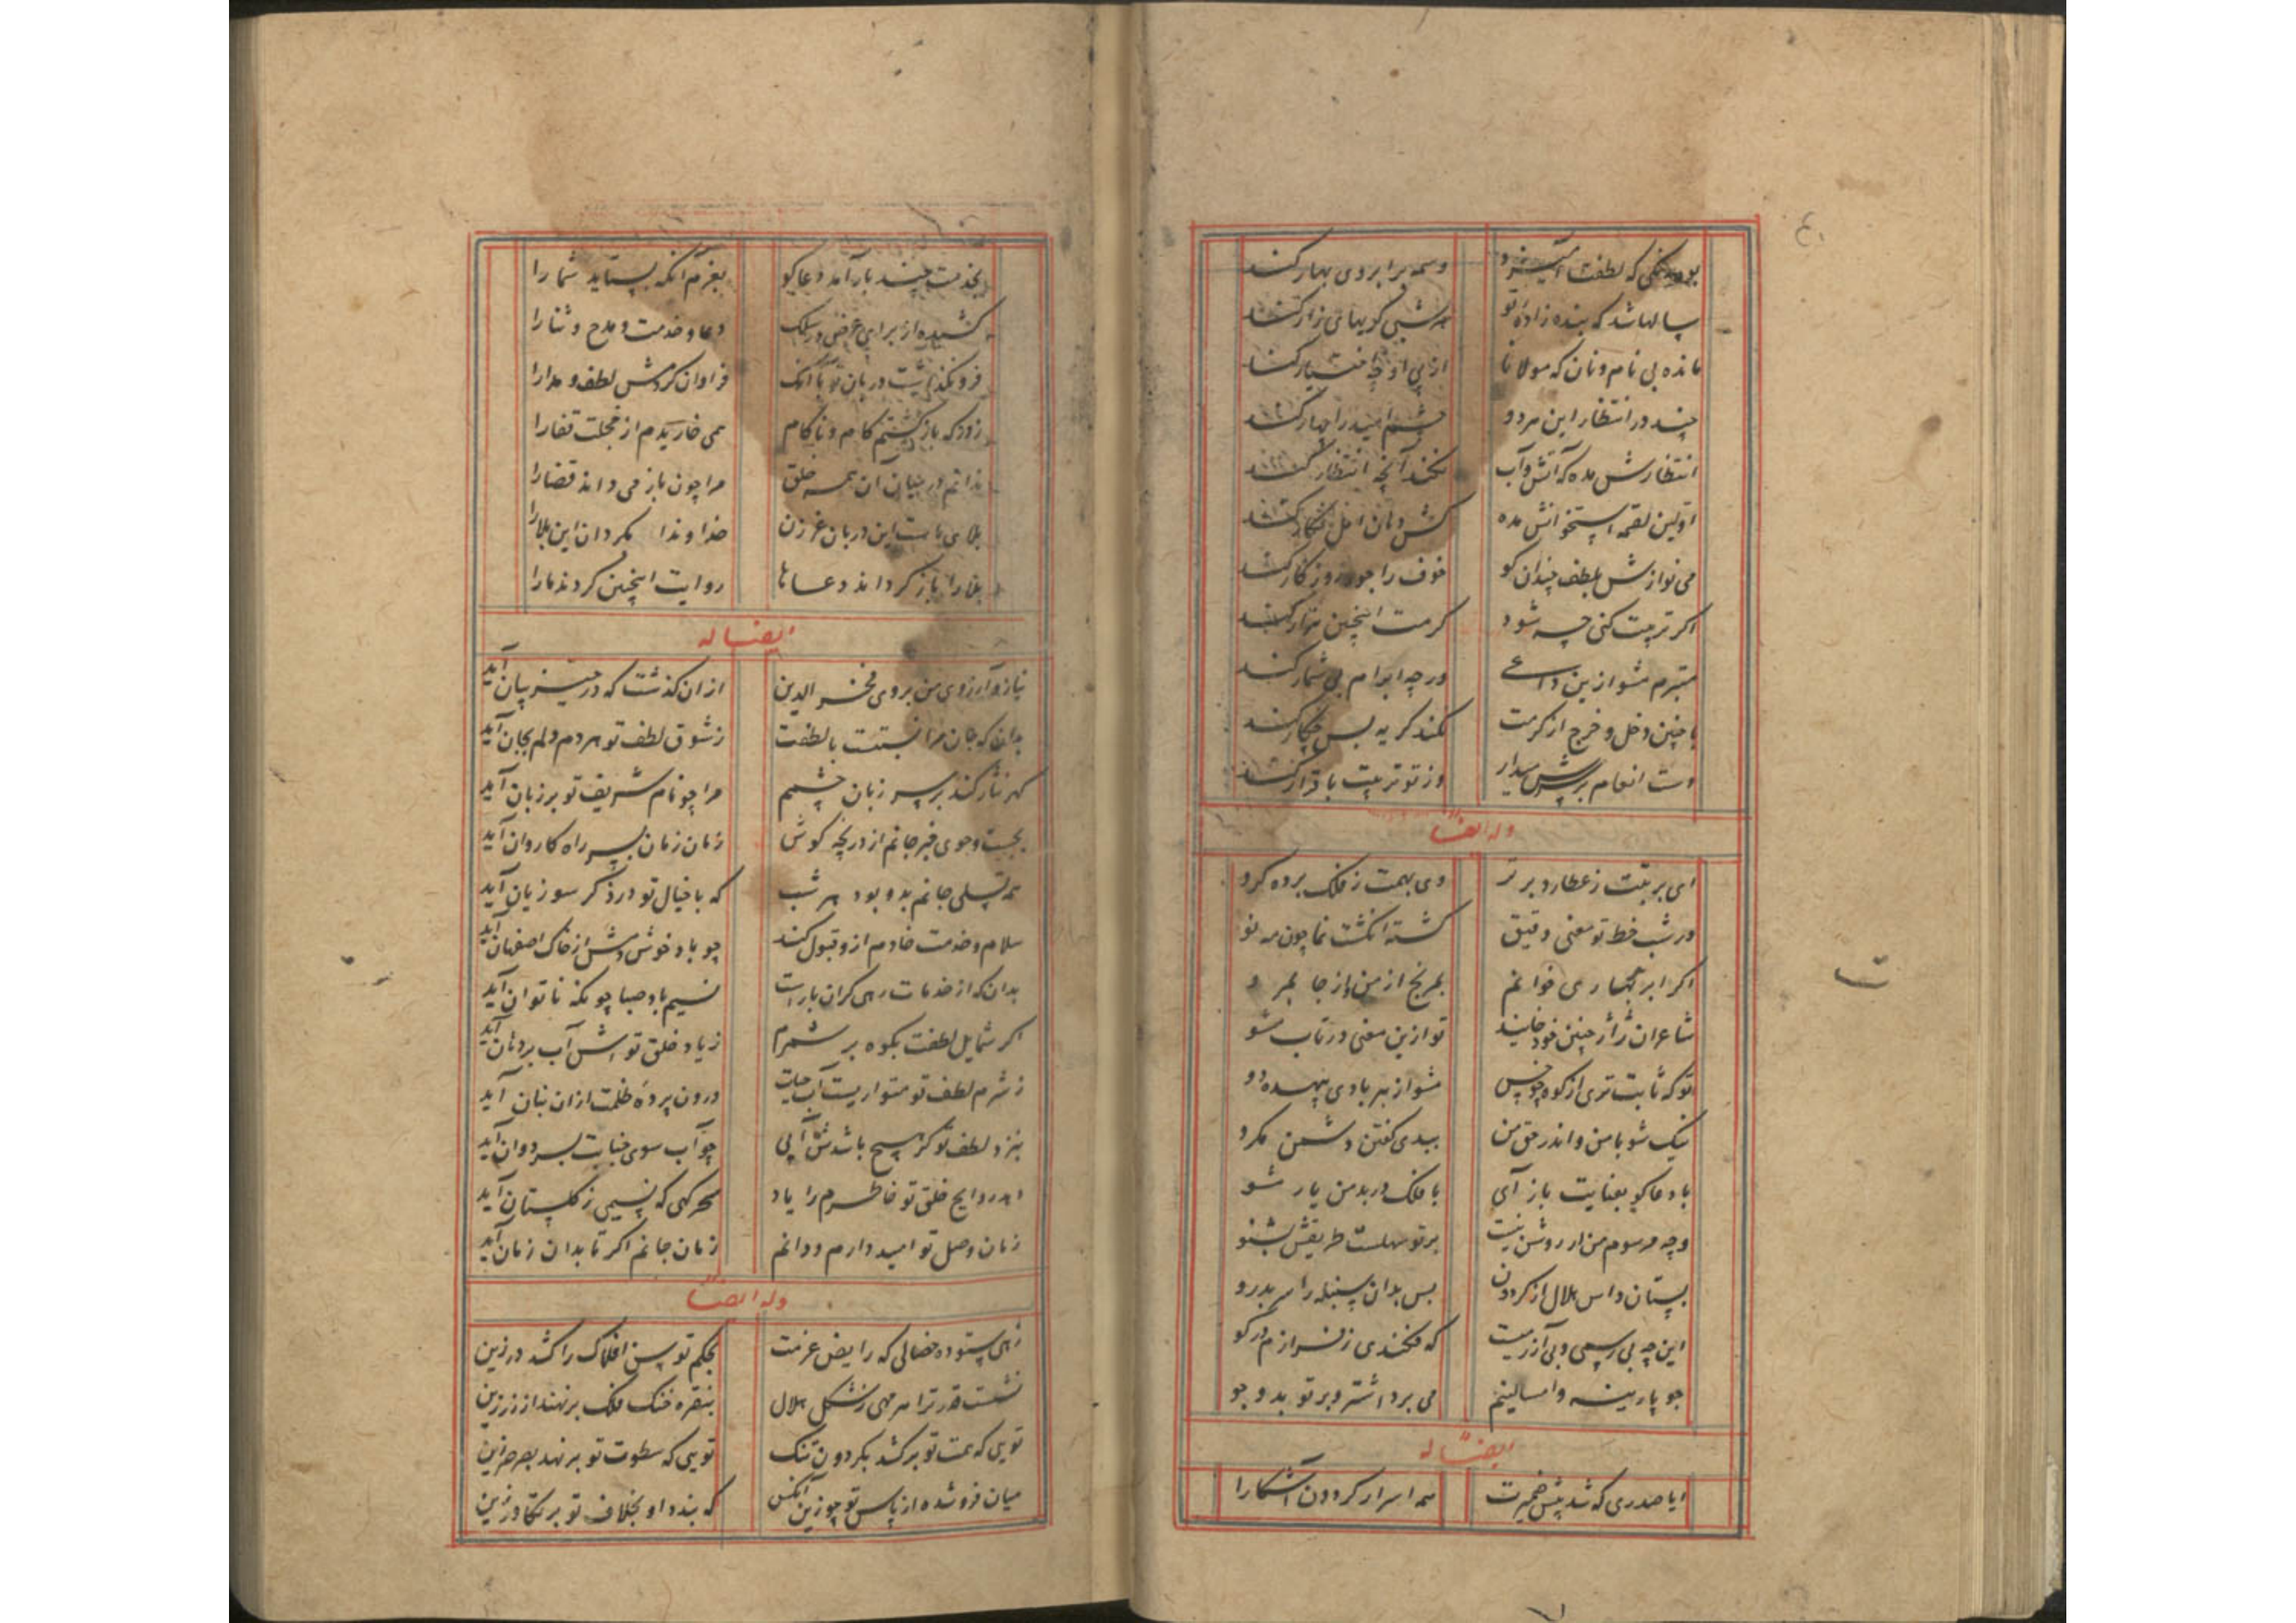 که لطفت وسمه بر ابروی بهار کند
سالها شد که بنده زاده تو هر شبی کریهای زار کند
مانده بی نام و نان که مولانا از پی او چه اختیار کند
چند در انتظار این هر دو چشم امید را چهار کند
انتظارش مده که آتش و آب نکند آنچه انتظار کند
اولین لقمه استخوانش مده
می نوازش بلطف چندان کو خوف را جور روزگار کند
اکر تربیت کنی چه شود کرمت اینچنین هزار کند
متبرم مشو ازین داعی ورچه ابرام بی شمار کند
با چنین دخل و خرج از کرمت نکند کریه پس چکار کند
دست انعام بر سرش میدار وز تو تربیت باقرار کند
وله ایضا
ای برتبت ز عطارد برتر وی بهمت ز فلک برده کرو
در شب خط تو معنی دقیق کشته انکشت نما چون مه نو
اکر ابر بهاری خوانم بمرنج از من و از جا بمرو
شاعران ژاژ چنین خود خایند تو ازین معنی در تاب مشو
تو که ثابت تری از کوه چو خس مشو از هر بادی بیهده دو
نیک شو با من و اندر حق من ببدی کفتن دشمن مکرو
با دعا کو بعنایت باز آی با فلک در بد من یار مشو
وجه مرسوم من ار روشن نیست بر تو سهلست طریقش بشنو
بستان داس هلال از کردون پس بدان سنبله را سر بدرو
این چه بی رسمی و بی آزرمیست که فکندی ز سر آزرم در کو
جو پارینه و امسالینم می برد اشتر و بر تو بدو جو
ایضا له
ایا صدری که شد پیش ضمیرت همه اسرار کردون آشکارا
بخدمت چند بار آمد دعا کو بعزم آنکه بستاید شما را
کشیده از برای عرض در سلک دعا و خدمت و مدح و ثنا را
فرو نکذاشت دربان تو با آنک فراوان کردمش لطف و مدارا
ز در که باز کشتم کام و ناکام همی خاریدم از خجلت قفا را
ندانم در میان آن همه خلق مرا چون باز می داند قضا را
بلای ماست این دربان غر زن خداوندا بکردان این بلا را
بلا را باز کرداند دعاها روایت اینچنین کردند ما را
ایضا له
نیاز و آرزوی من بروی فخر الدین از ان کذشت که در حیز بیان آید
بدان که جان مرا نسبتست با لطفت ز شوق لطف تو هر دم دلم بجان آید
کهر نثار کند بر سر زبان چشمم مرا چو نام شریف تو بر زبان آید
بجست و جوی خبر جانم از دریچه کوش زمان زمان بسر راه کاروان آید
همه تسلی جانم بدو بود هر شب که با خیال تو در ذکر سوزیان آید
سلام و خدمت خادم ازو قبول کند چو باد خوش دمش از خاک اصفهان آید
بدان که از خدمات رهی کران بارست نسیم باد صبا چونکه ناتوان آید
اکر شمایل لطفت بکوه بر شمرم ز یاد خلق تواش آب بر دهان آید
ز شرم لطف تو متواریست آب حیات درون پرده ظلمت از ان نهان آید
بنزد لطف تو کر هیچ باشدش آبی چو آب سوی جنابت بسر دوان آید
دهد روایح خلق تو خاطرم را یاد سحر کهی که نسیمی ز کلستان آید
زمان وصل تو امید دارم و دانم زمان جانم اکر تا بدان زمان آید
وله ایضا
زهی ستوده خصالی که رایض عزمت بحکم توسن افلاک را کشد در زین
نشست قدر ترا هر مهی ز شکل هلال بنقره خنک فلک بر نهند از زر زین
تویی که همت تو بر کشد بکردون تنک تویی که سطوت تو بر نهد بصرصر زین
میان فرو شده از پاس تو چو زین آنکس که بندد او بخلاف تو بر تکاور زین